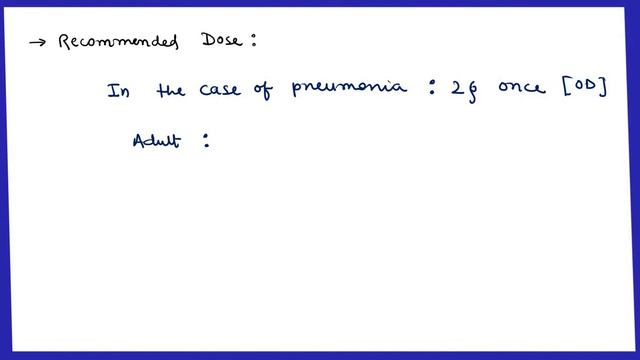 → Recommended Dose :
In the case of pneumonia : 2g once [OD]
Adult :